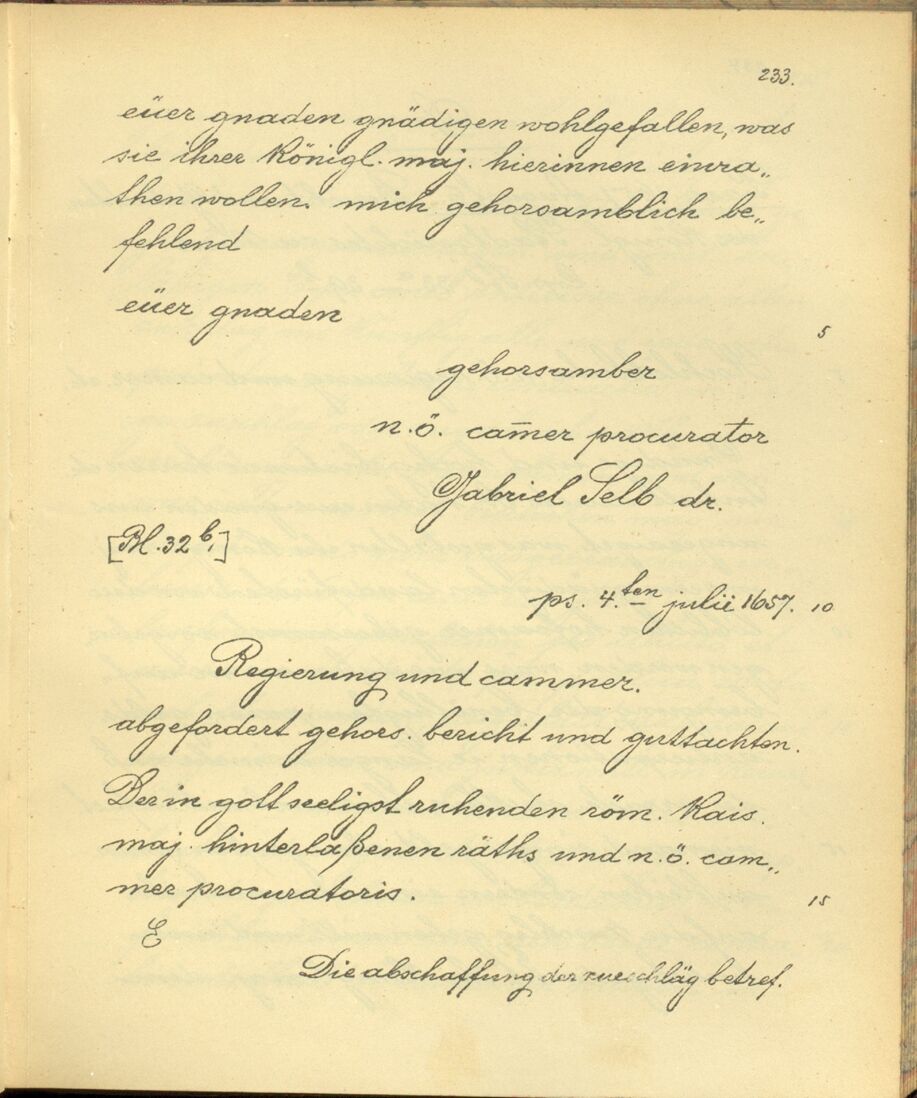 233.
eüer gnaden gnädigen wohlgefallen, was
sie ihrer königl. maj. hierinnen einra„
then wollen. mich gehorsamblich be„
fehlend
eüer gnaden
5
gehorsamber
n.ö. cam̄er procurator
Gabriel Selb dr.
[Bl. 32 b.]
ps. 4.ten julii 1657. 10
Regierung und cammer.
abgefordert gehors. bericht und guttachten.
Der in gott seeligst ruhenden röm. kais.
maj. hinterlaßenen räths und n.ö. cam„
mer procuratoris.
15
Die abschaffung der zueschläg betref.